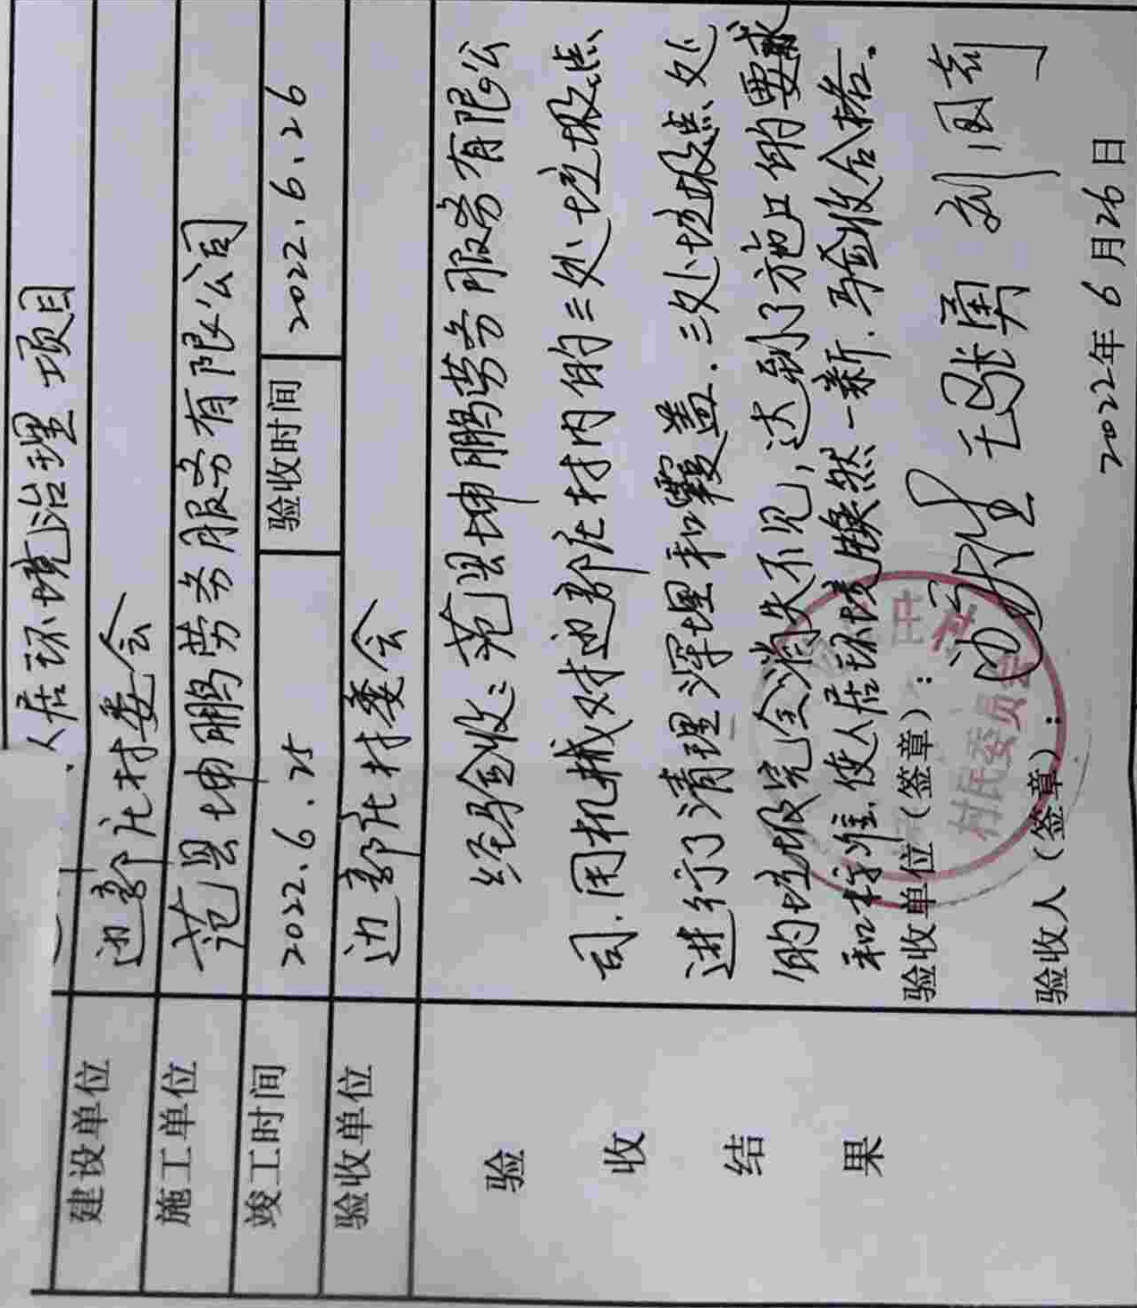 人居环境治理项目
建设单位 边郭庄村委会
施工单位 范县坤鹏劳务服务有限公司
竣工时间 2022.6.25 验收时间 2022.6.26
验收单位 边郭庄村委会
验收结果
经验收:范县坤鹏劳务服务有限公
司.用机械对边郭庄村内的三处垃圾点
进行了清理深埋和覆盖.三处垃圾点处
的垃圾完全消失不见,达到了施工的要求
和标准使人居环境焕然一新.验收合格.
验收单位(签章):
村民委员会
验收人(签章):
2022年6月26日